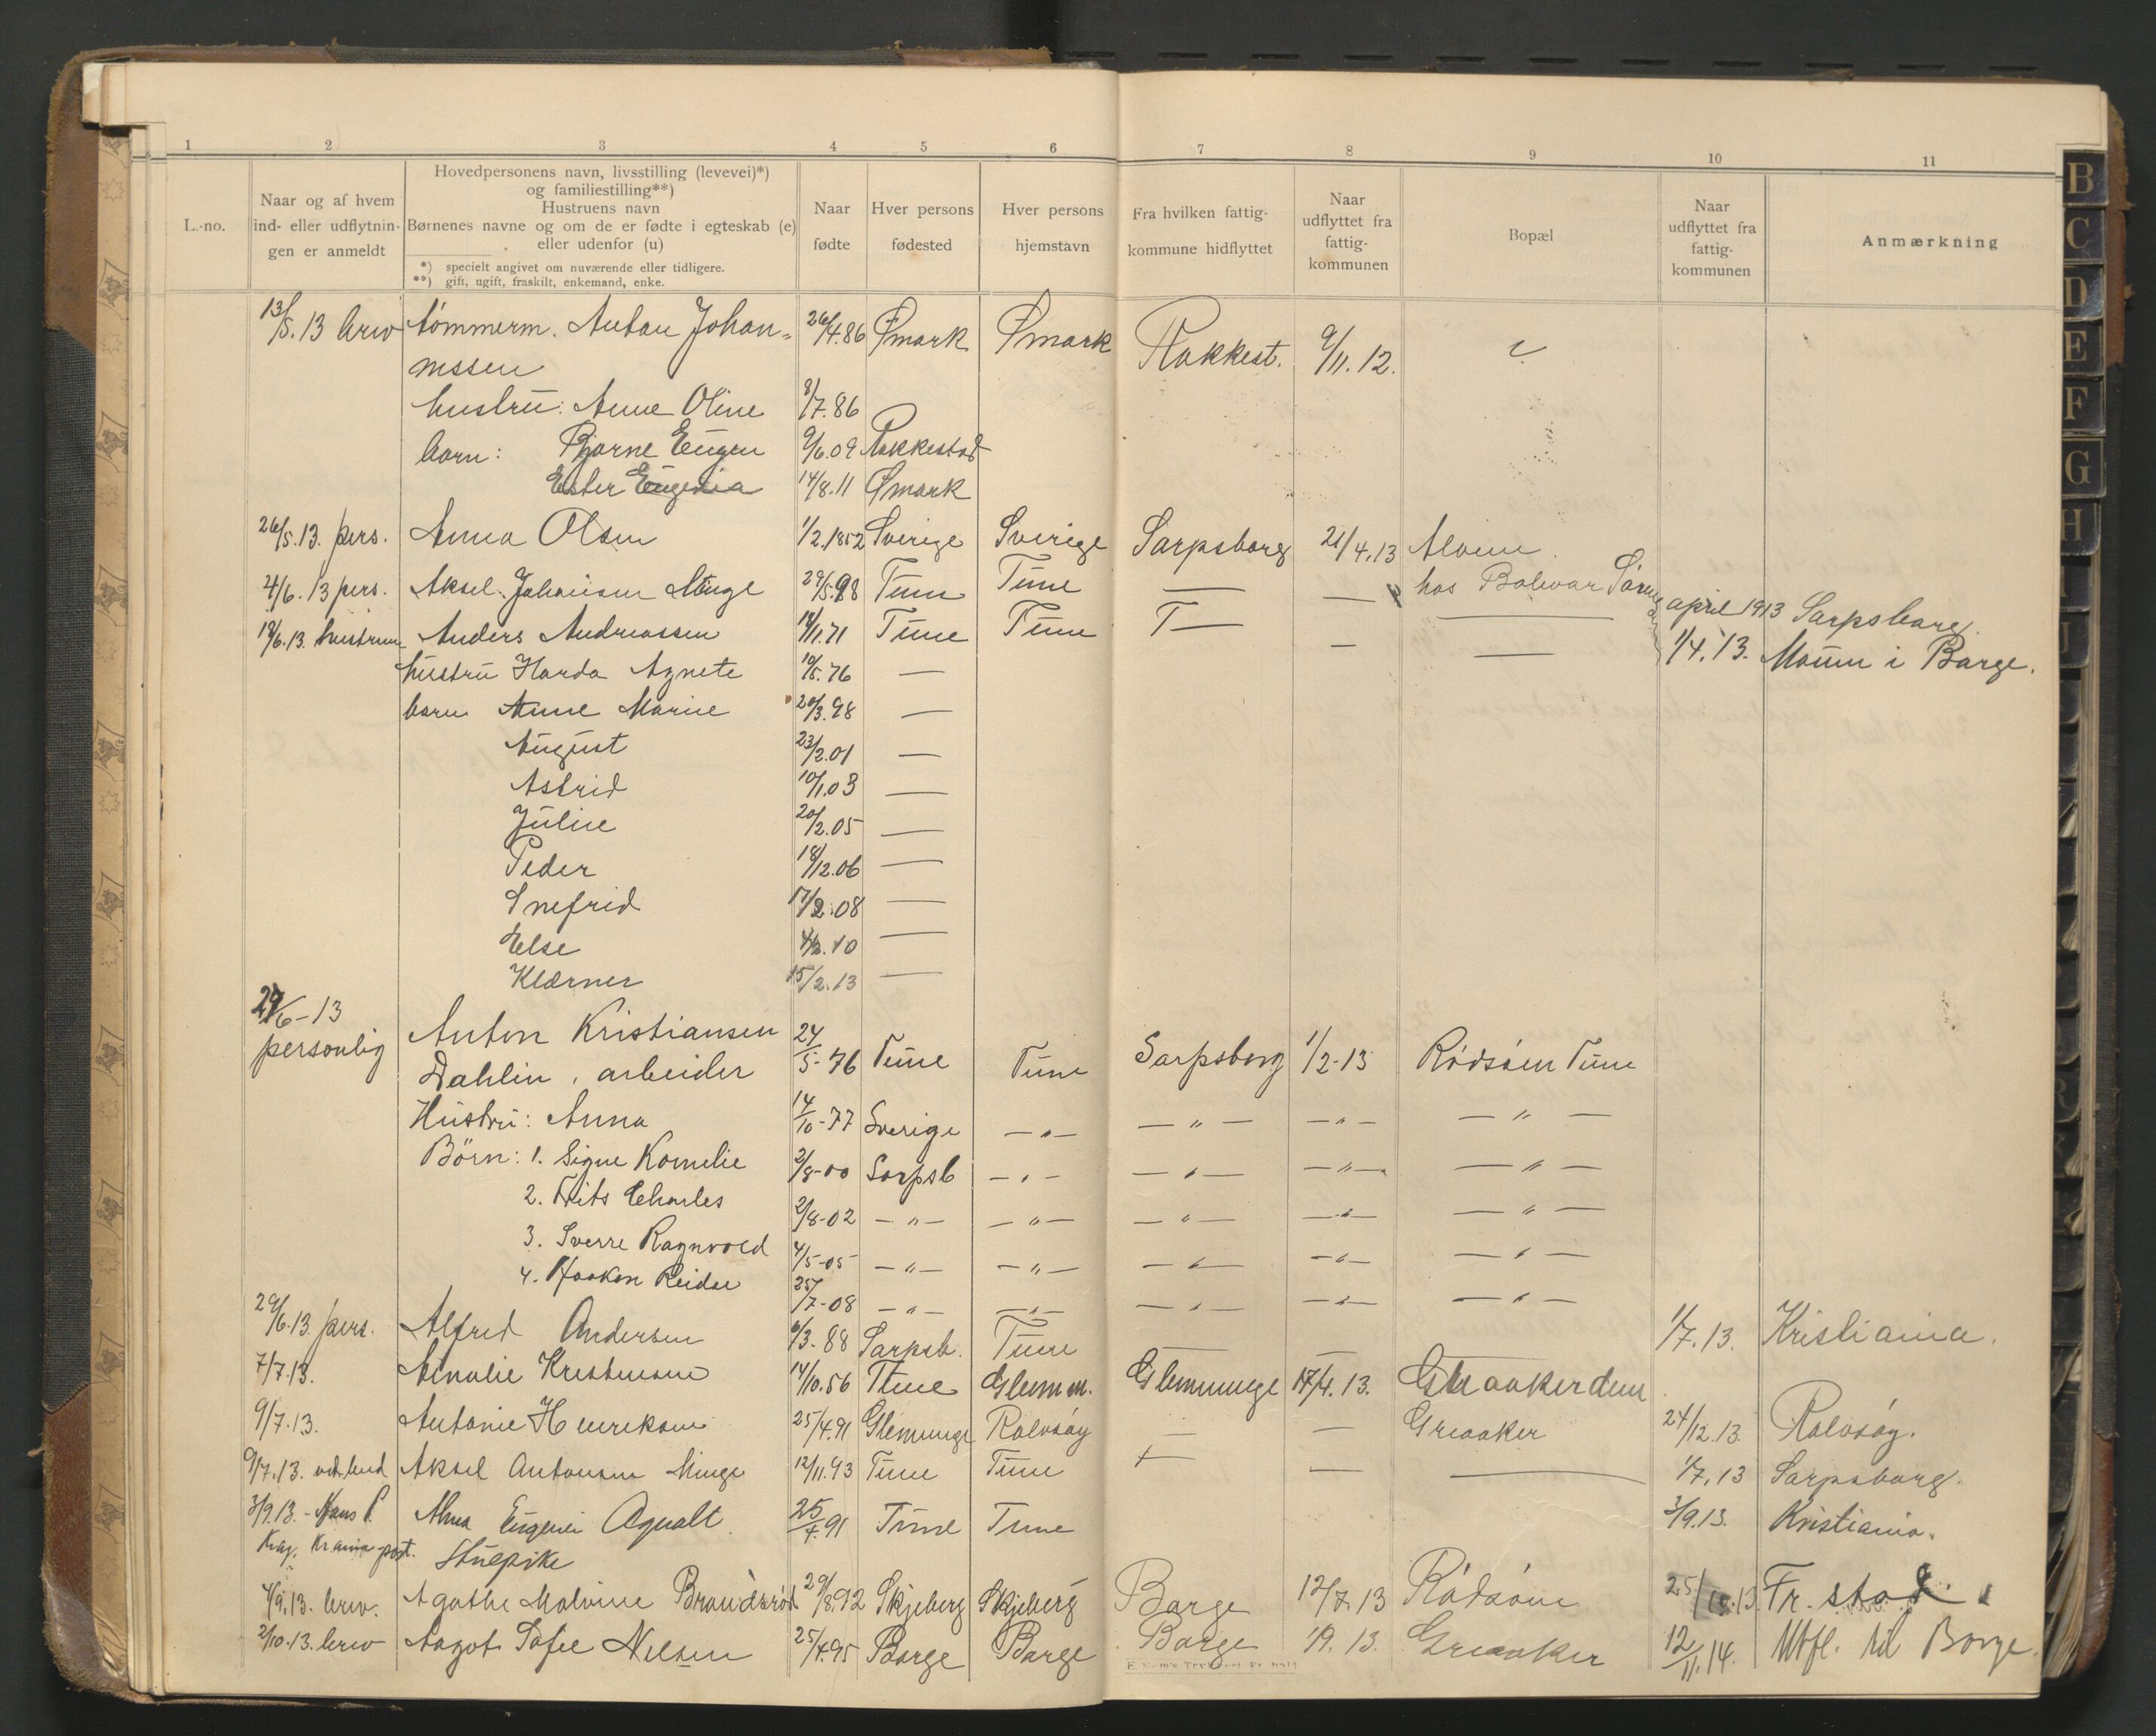 1 2 3 4 5 6 7 8 9 10 11
L.-no.
Naar og af hvem
ind- eller udflytnin-
gen er anmeldt
Hovedpersonens navn, livsstilling (levevei)*)
og familiestilling**)
Hustruens navn
Børnenes navne og om de er fødte i egteskab (e)
eller udenfor (u)
*) specielt angivet om nuværende eller tidligere.
**) gift, ugift, fraskilt, enkemand, enke.
Naar
fødte
Hver persons
fødested
Hver persons
hjemstavn
Fra hvilken fattig-
kommune hidflyttet
Naar
udflyttet fra
fattig-
kommunen
Bopæl
Naar
udflyttet fra
fattig-
kommunen
Anmærkning
13/5.13 brev tømmerm. Anton Johan= 26/4.86 Ømark Ømark Rakkest. 9/11.12.
nssen
hustru: Anne Oline 8/7.86
barn: Bjarne Eugen 9/6.09 Rakkestad
Ester Eugenia 14/8.11 Ømark
26/5.13. pers. Anna Olsen 1/2.1852 Sverige Sverige Sarpsborg 21/4.13 Alvim
4/6.13 pers. Aksel Johansen Minge 29/5.98 Tune Tune — — hos Bolevar april 1913 Sarpsborg.
18/6.13. hustruen Anders Andreassen 18/1.71 Tune Tune — — — 1/4.13. Moum i Borge.
hustru Harda Agnete 10/5.76 —
barn Anne Marie 20/3.98 —
August 23/2.01 —
Astrid 10/1.03 —
Julie 20/2.05 —
Peder 18/12.06 —
Snefrid 17/2.08 —
Else 4/2.10 —
Klærner 15/2.13 —
27/6-13
personlig
Anton Kristiansen 24/5-76 Tune Tune Sarpsborg 1/2-13 Rødsøen Tune
Dahlin, arbeider
Hustru: Anna 14/10-77 Sverige —"— —"— —"— —"—
Börn: 1. Signe Kornelie 2/8-00 Sarpsb —"— —"— —"— —"—
2. Frits Charles 2/8-02 —"— —"— —"— —"— —"—
3. Sverre Ragnvald 4/5-05 —"— —"— —"— —"— —"—
4. Haakon Reidar 25/7-08 —"— —"— —"— —"— —"—
29/6.13. pers. Alfred Andersen 6/3.88 Sarpsb. Tune — — — 1/7.13. Kristiania.
7/7.13. Amalie Kristensen 14/10.56 Tune Glemm. Glemminge 17/4.13. Greaakerdem
9/7.13. Antonie Henriksen 25/4.91 Glemminge Rolvsøy — — Greaaker 24/12.13. Rolvsøy.
9/7.13. ved bud Aksel Antonsen Minge 12/11.93 Tune Tune — — — 1/7.13 Sarpsborg.
3/9.13. - Hans P. Alma Eugenie Agnalt. 25/4.91 Tune Tune 3/9.13. Kristiania.
Krag. Krania post. Stuepike
4/9.13. brev. Agathe Malvine Brandsrød 29/8.92 Skjeberg Skjeberg Borge 12/7.13 Rødsøen 25/10.13. Fr.stad.
2/10.13. brev Aagot Sofie Nilsen 25/4.95 Borge Borge Borge 1/9.13. Greaaker 12/11.14. Utfl. til Borge.
B
C
D
E
F
G
H